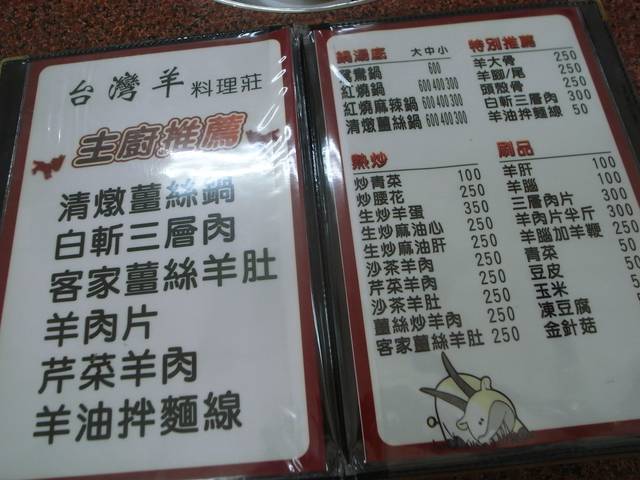 台灣羊 料理莊
主廚推薦
清燉薑絲鍋
白斬三層肉
客家薑絲羊肚
羊肉片
芹菜羊肉
羊油拌麵線
鍋湯底 大中小
鴛鴦鍋 600
紅燒鍋 600 400 300
紅燒麻辣鍋 600 400 300
清燉薑絲鍋 600 400 300
熱炒
炒青菜 100
炒腰花 250
生炒羊蛋 350
生炒麻油心 250
生炒麻油肝 250
沙茶羊肉 250
芹菜羊肉 250
沙茶羊肚 250
薑絲炒羊肉 250
客家薑絲羊肚 250
特別推薦
羊大骨 250
羊腳/尾 250
頭殼骨 250
白斬三層肉 300
羊油拌麵線 50
涮品
羊肝 100
羊腦 100
三層肉片 300
羊肉片半斤 300
羊腦加羊鞭 250
青菜 50
豆皮 50
玉米
凍豆腐
金針菇